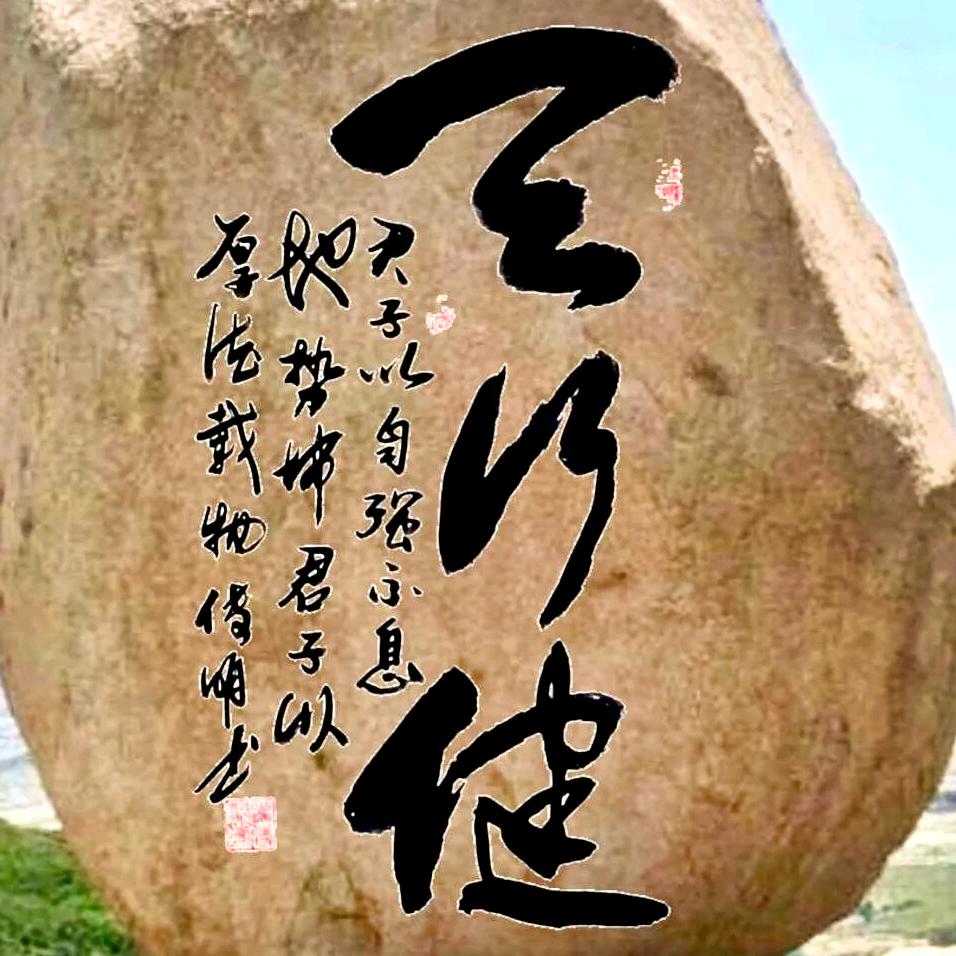 天行健
君子以自强不息
地势坤君子以
厚德载物传明书